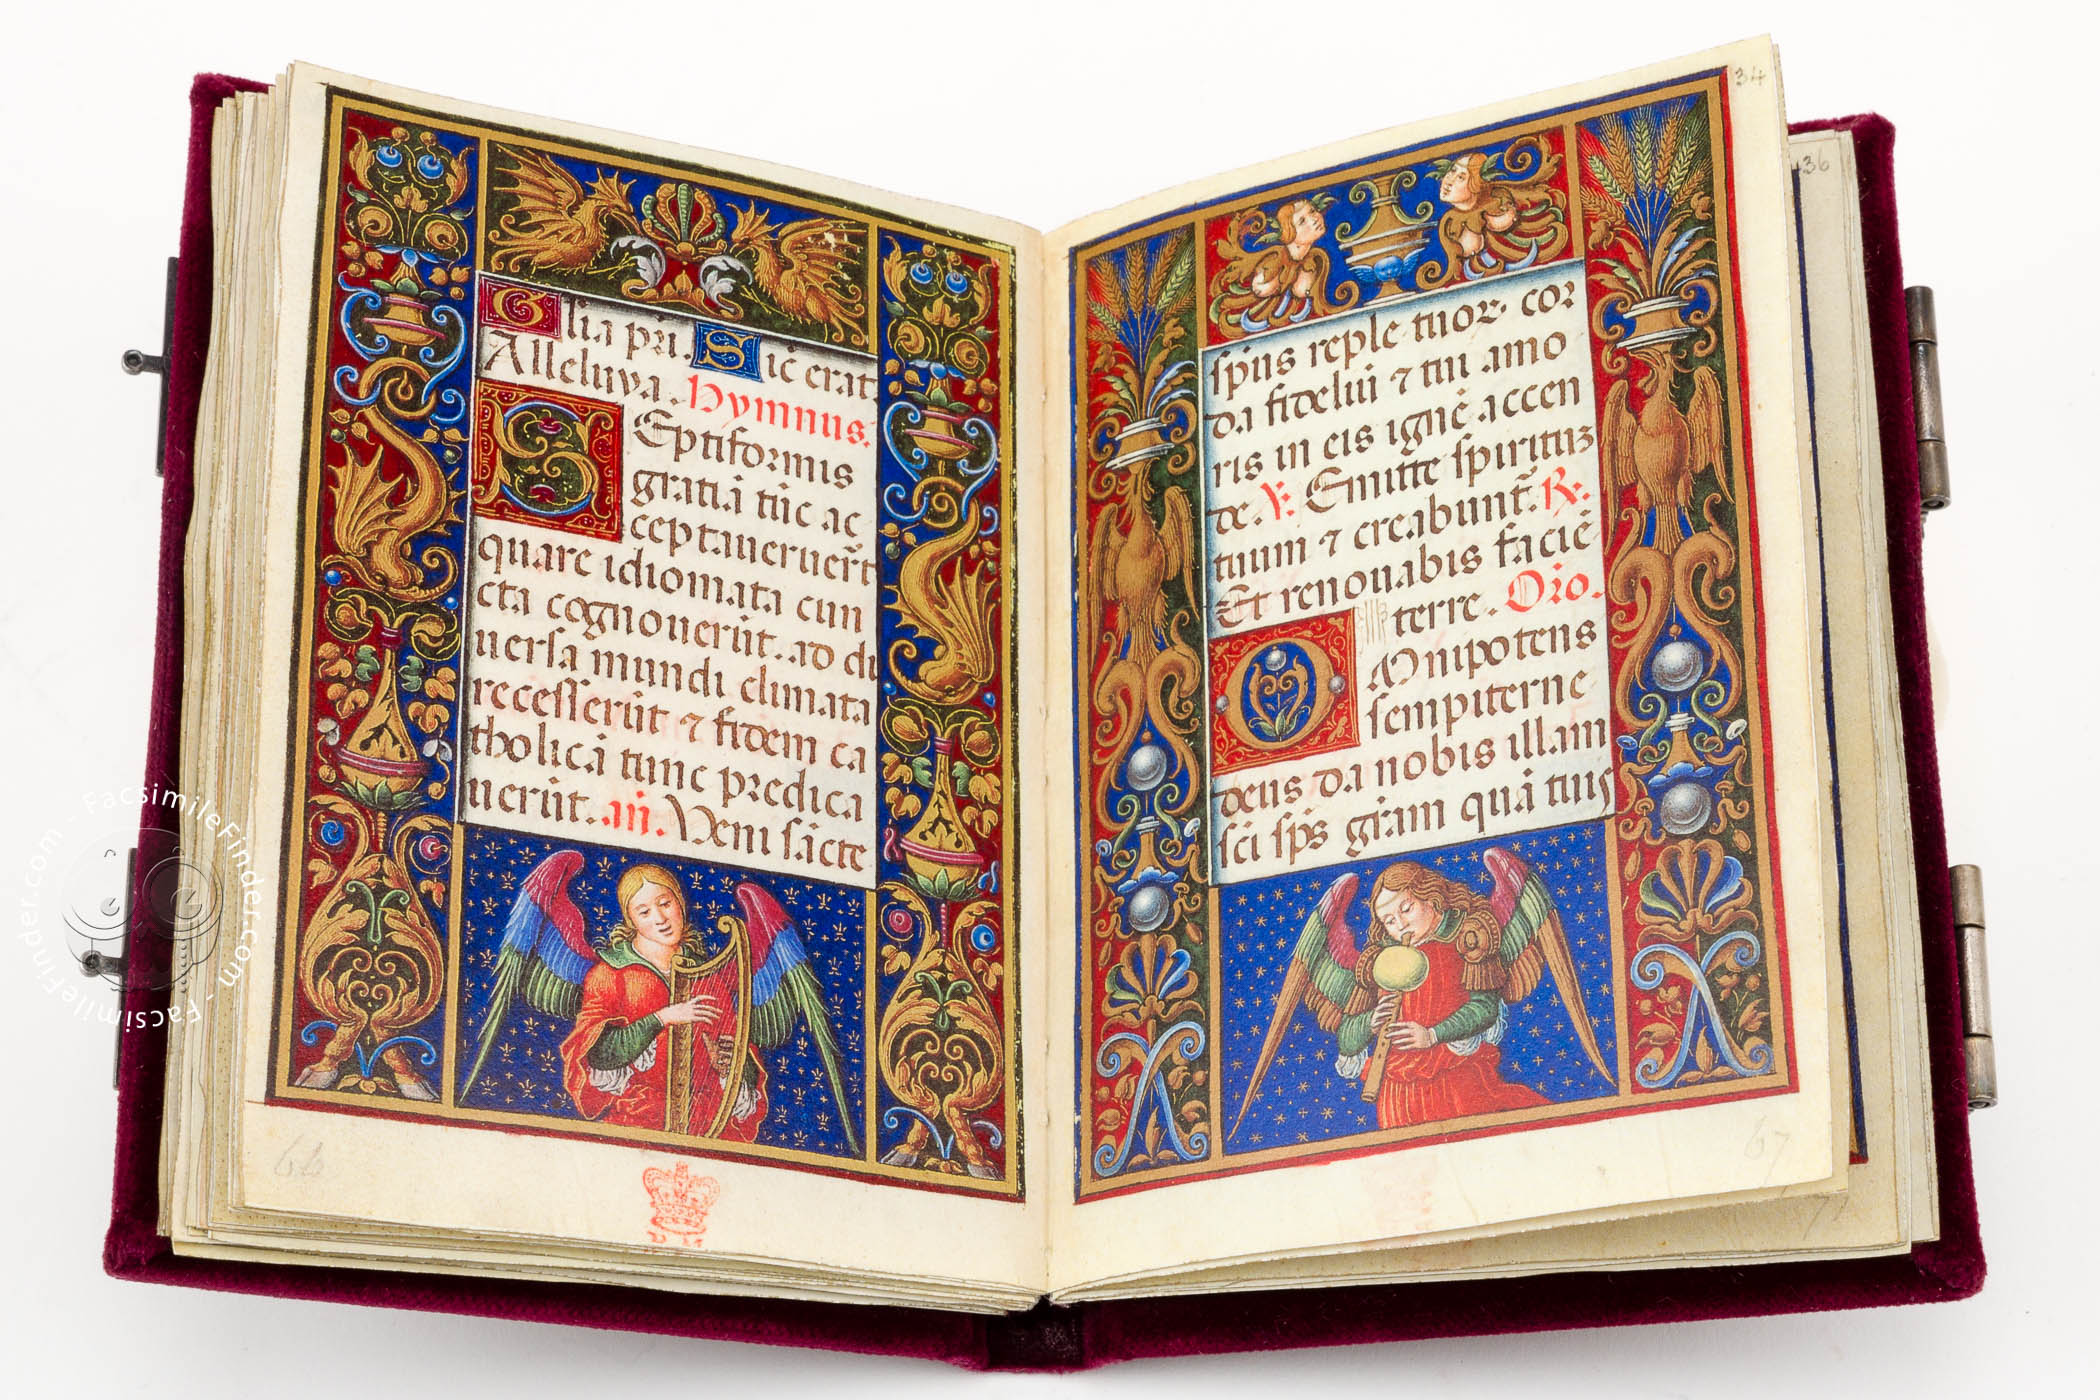 Glia pri. Sic erat.
Alleluya. Hymnus.
SEptiformis
gratiā tūc ac
ceptaueruēt
quare idiomata cun
cta cognouerūt. ad di
uersa mundi climata
recesserūt ⁊ fidem ca
tholicā tunc predica
uerūt. añ. Veni sācte
66
34
spūs reple tuoꝝ cor
da fideliū ⁊ tui amo
ris in eis ignē accen
de. V: Emitte spirituʒ
tuum ⁊ creabunt̄. R:
Et renouabis faciē
terre. Oro.
OMnipotens
sempiterne
deus da nobis illam
sci sp̄s grām quā tuis
67
36
FacsimileFinder.com - FacsimileFinder.com -